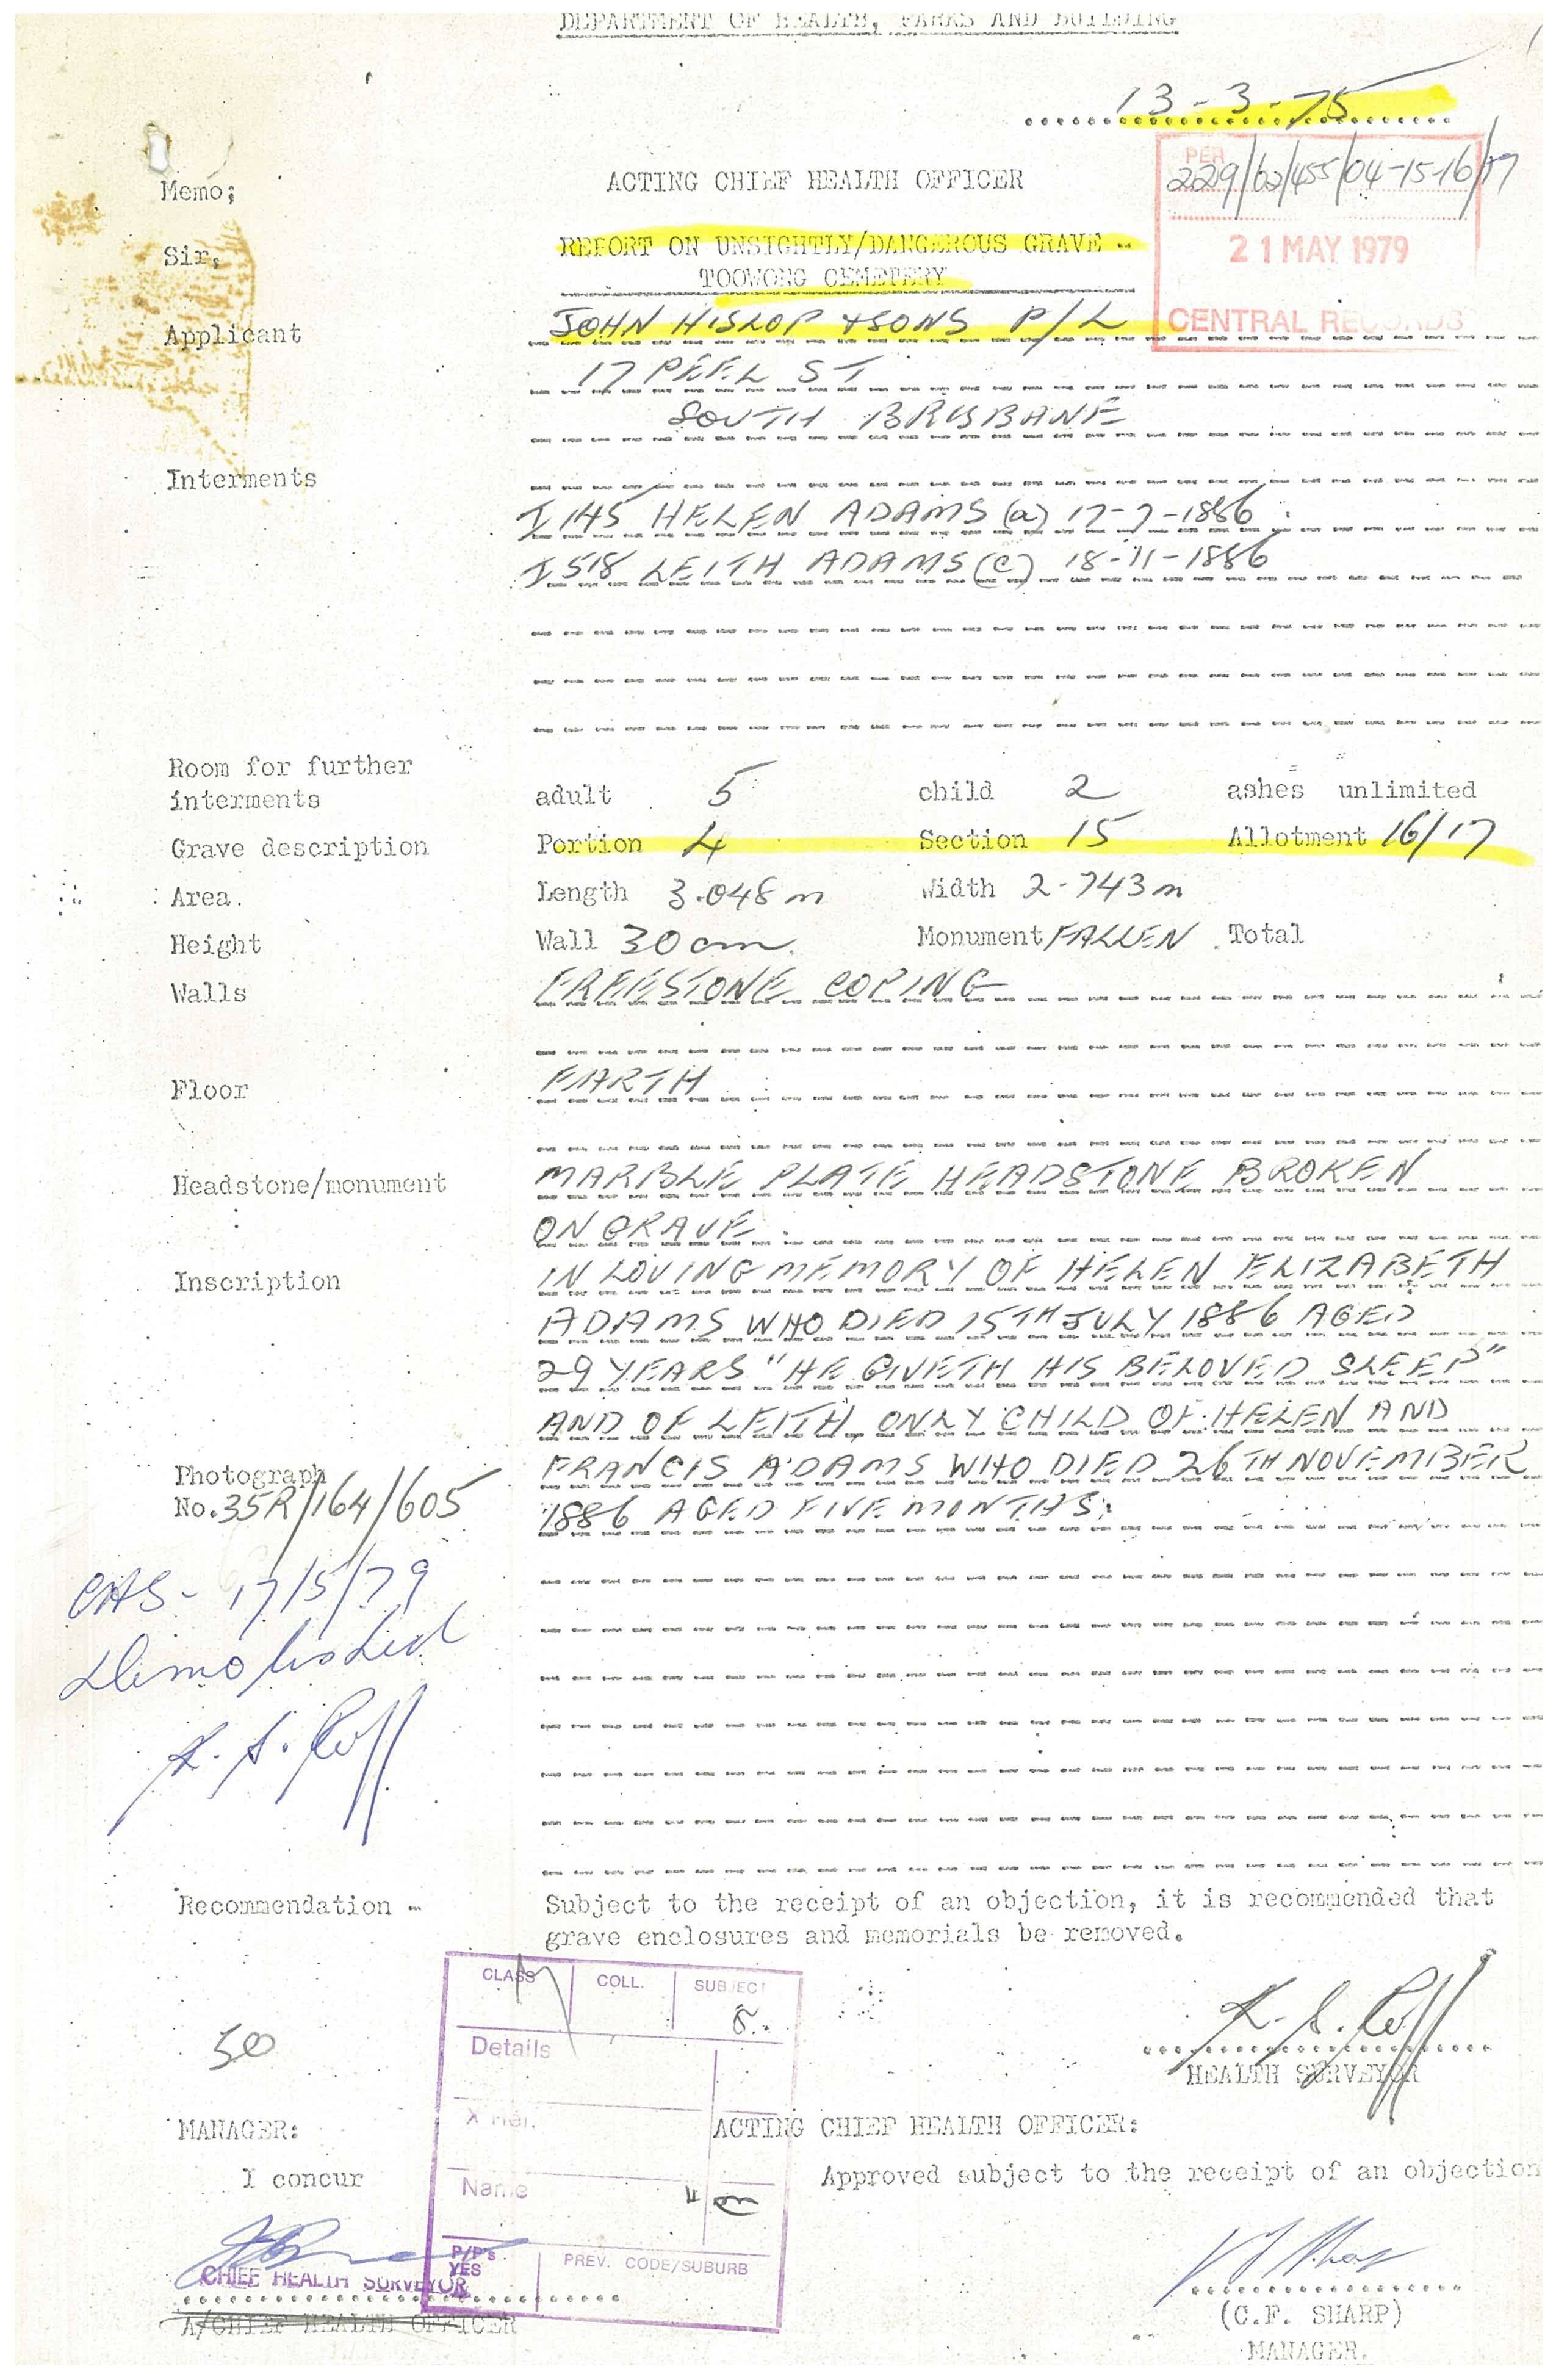 DEPARTMENT OF HEALTH, PARKS AND BUILDING
13-3-75
PER
229/62/455/04-15-16/17
21 MAY 1979
CENTRAL RECORDS
Memo;
ACTING CHIEF HEALTH OFFICER
Sir,
REPORT ON UNSIGHTLY/DANGEROUS GRAVE -
TOOWONG CEMETERY
Applicant JOHN HISLOP & SONS P/L
17 PEEL ST
SOUTH BRISBANE
Interments
I 145 HELEN ADAMS (a) 17-7-1886
I 518 LEITH ADAMS (C) 18-11-1886
Room for further
interments adult 5 child 2 ashes unlimited
Grave description Portion 4 Section 15 Allotment 16/17
Area. Length 3.048 m Width 2.743 m
Height Wall 30 cm. Monument FALLEN Total
Walls FREESTONE COPING
Floor EARTH
Headstone/monument MARBLE PLATE HEADSTONE BROKEN
ON GRAVE.
Inscription IN LOVING MEMORY OF HELEN ELIZABETH
ADAMS WHO DIED 15TH JULY 1886 AGED
29 YEARS "HE GIVETH HIS BELOVED SLEEP"
AND OF LEITH ONLY CHILD OF HELEN AND
FRANCIS ADAMS WHO DIED 26TH NOVEMBER
1886 AGED FIVE MONTHS.
Photograph
No. 35R/164/605
17/5/79
Demolished
Recommendation - Subject to the receipt of an objection, it is recommended that
grave enclosures and memorials be removed.
CLASS COLL. SUBJECT
Details
X Ref.
Name
P/P's
YES
PREV. CODE/SUBURB
50
HEALTH SURVEYOR
MANAGER: ACTING CHIEF HEALTH OFFICER:
I concur Approved subject to the receipt of an objection
CHIEF HEALTH SURVEYOR
A/CHIEF HEALTH OFFICER
(C.F. SHARP)
MANAGER.